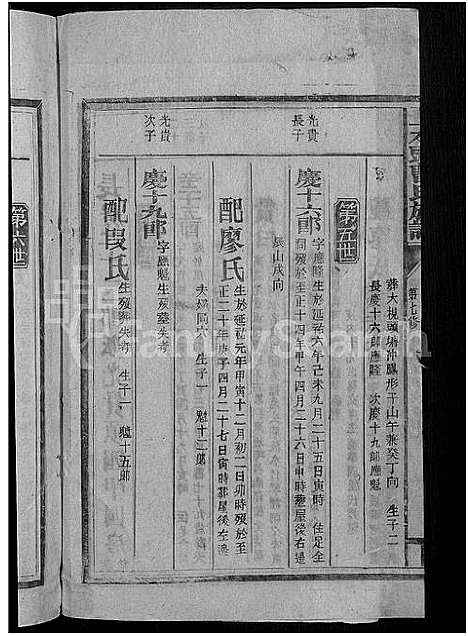 葬大梘頭塘沖鳳形子山午兼癸丁向 生子二
長慶十六郎應隆 次慶十九郎應魁
第五世
光貴
長子
慶十六郎
字應隆生於延祐六年己未九月二十五日寅時 住足全
歿於至正十四年甲午四月二十六日申時葬屋後右邊
辰山戌向
配廖氏
生於延祐元年甲寅十二月初二日卯時歿於至
正二十年庚子四月二十七日寅時葬屋後左邊
夫婦同穴 生子一 魁十二郎
光貴
次子
慶十九郎
字應魁生歿葬失考
配段氏
生歿葬失考 生子一 魁十五郎
第六世
第七修